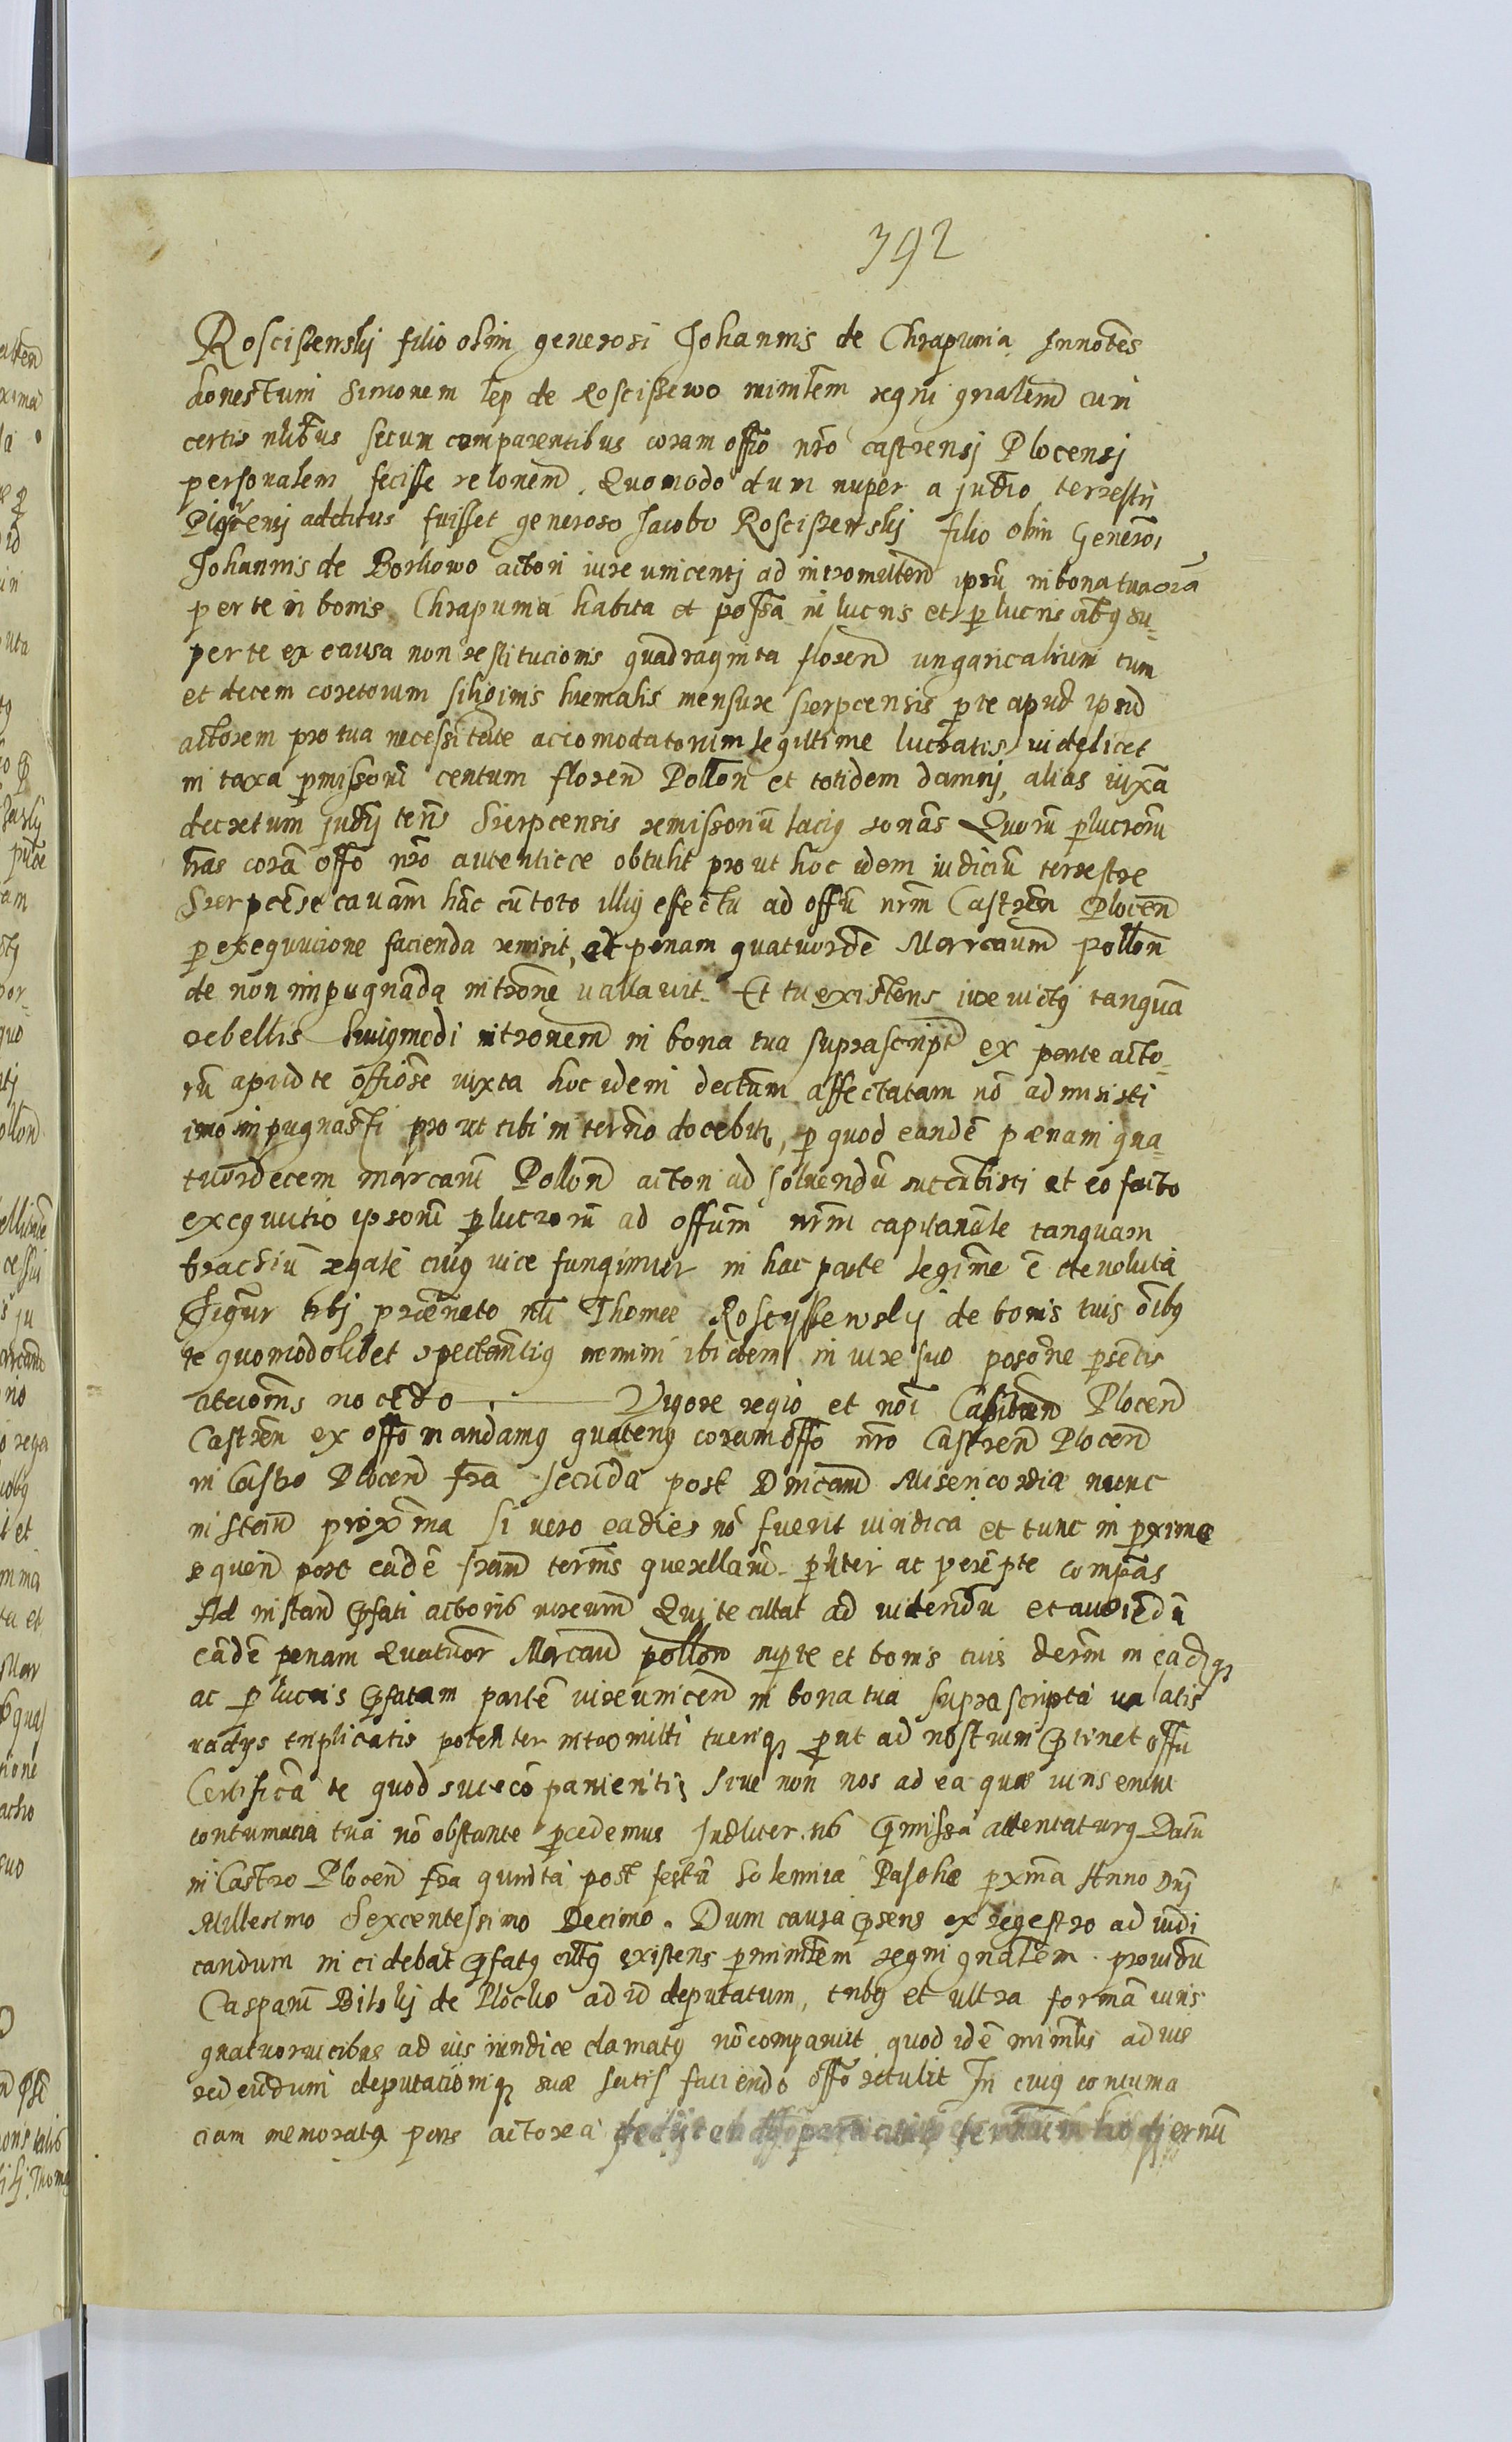 392
Roscissewskij filio olim generosi Johannis de Chrapunia Innotes
honestum Simonem lep de Roscissewo minĩtem regni gnalem̃ cum
certis nlibus secum comparentibus coram offo nr̃o castrensj Plocensj
personalem fecisse relonem̃. Quomodo dum nuper a judio terrestri
additus fuisset generoso Jacobo Roscissewskij filio olim Genero͂si
Johannis de Borkowo actori iure vincentj ad intromitten̄ ipsũ in bona tua
per te in bonis Chrapunia habita et possa in lucris et p lucris abs su-
per te ex causa non restitucionis quadraginta floren̄ ungaricalium tum
et decem coretorum siliginis hiemalis mensure sierpcensis p te apud ipsũ
actorem pro tua necessitate accomodatorum legittime lucratis videlicet
in taxa pmissorũ centum floren̄ Pollon̄ et totidem damnj, alias iuxta
decretum judij terris Sierpcensis remissoriũ lacig sonãs Quorũ plucrorũ
lr̃as corã offo nr̃o autenticce obtulit prout hoc idem iudiciũ terrestre
Sierpcẽse causam hãc cũ toto illig effectu ad offũ nr̃m Castren̄ Plocen̄
p exequucione facienda remisit, ad penam quatuordẽ Marcarum̃ pollon̄
de non impugnãda introne vallavit. Et tu existens iure victg tanquã
rebellis huigmodi intronem̃ in bona tua suprascript̃ ex parte acto-
rũ apud te offiose iuxta hoc idem dectum affectatam nõ admisisti
imo impugnasti prout tibi in termo docebitr, p quod eandẽ pænam qua-
tuordecem marcarũ Pollon̄ actori ad solvendũ succubisti et eo facto
exequutio ipsorũ plucrorũ ad offum nr̃m capitanale tanquam
brachiũ regale cuig vice fungimur in hac parte legime ẽ devoluta
Sigur tibj nli Thomæ Roscyssewskij de bonis tuis oĩbg
te quomodolibet spectantig nemini ibidem in iure suo posone psetis
no cedo — Vigore regio et nõi Capitan̄ Plocen̄
Castren̄ ex offo mandamg quateng coram offo nr̃o Castren̄ Plocen̄
in Castro Plocen̄ fra secũda post Dnicam̃ Misericordiæ nunc
instan̄ proxima si vero ea dies nõ fuerit iuridica et tunc in pxima
sequen̄ post eãdẽ fram̃ termis querellarũ pliter ac perẽpte compãs
Ad instan̄ psati actoris iureum̃ Qui te cittat ad videndũ et audiẽdũ
eãdẽ penam Quatuor Marcarũ pollon̄ sup te et bonis tuis in eadqz
ac p lucris psatam partẽ vire vincen̄ in bona tua suprascripta valatis
vadys triplicatis potenter intromitti tueriqz put ad nostrum ptinet offũ
Certificã te quod sivecõparueritis sive non nos ad ea quæ iuris erunt
contumatia tua nõ obstante pcedemus Judliter nõ pmissa attentaturg Datũ
in Castro Plocen̄ fra quinta post festa solemnia Paschæ pxma Anno Dnj
Millesimo Sexcentessimo Decimo. Dum causa psens ex regestro ad iudi
candum incidebat psatg cittg existens p minitem regni gnalem providũ
Casparũ Bitskij de Plocko ad id deputatum, tribg et ultra formã iuris
quatuor vicibus ad ius iuridice clamatg nõ comparuit quod idẽ minitis ad ius
redeundum deputacionqz suæ satisfaciendo offo retulit In cuig contuma
ciam memoratg pars actorea terminũ hodiernũ